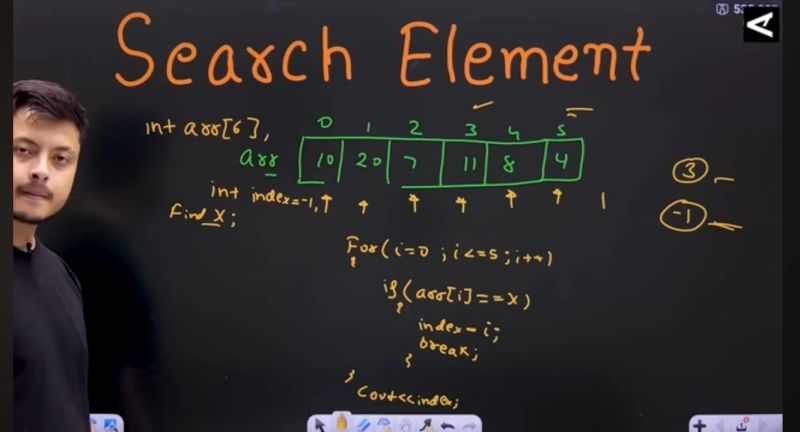 Search Element
0 1 2 3 4 5
int arr[6],
arr 10 20 7 11 8 4
3
int index=-1,
-1
Find X;
For(i=0 ; i<=5 ; i++)
{
if(arr[i]==X)
{
index=i;
break;
}
}
Cout<<index;